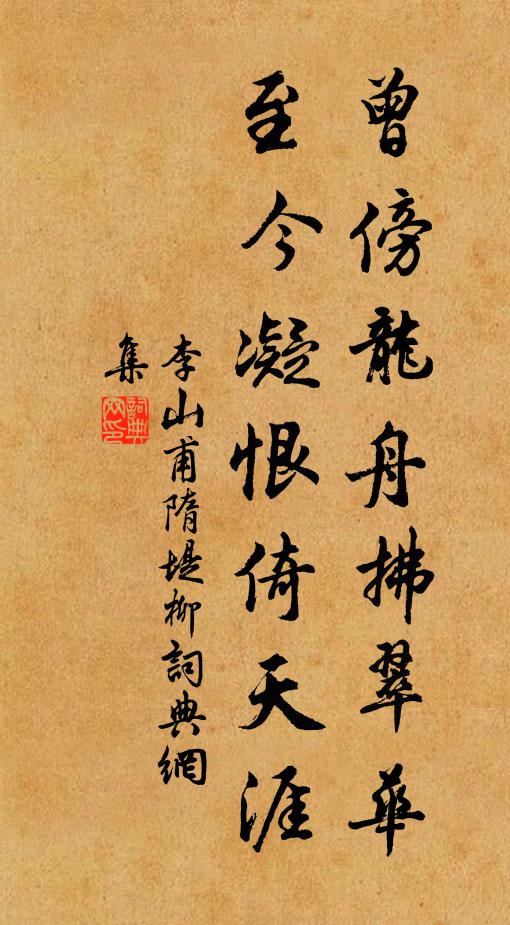 曾傍龍舟拂翠華
至今凝恨倚天涯
李山甫隋堤柳詞典網
集
詞典网印